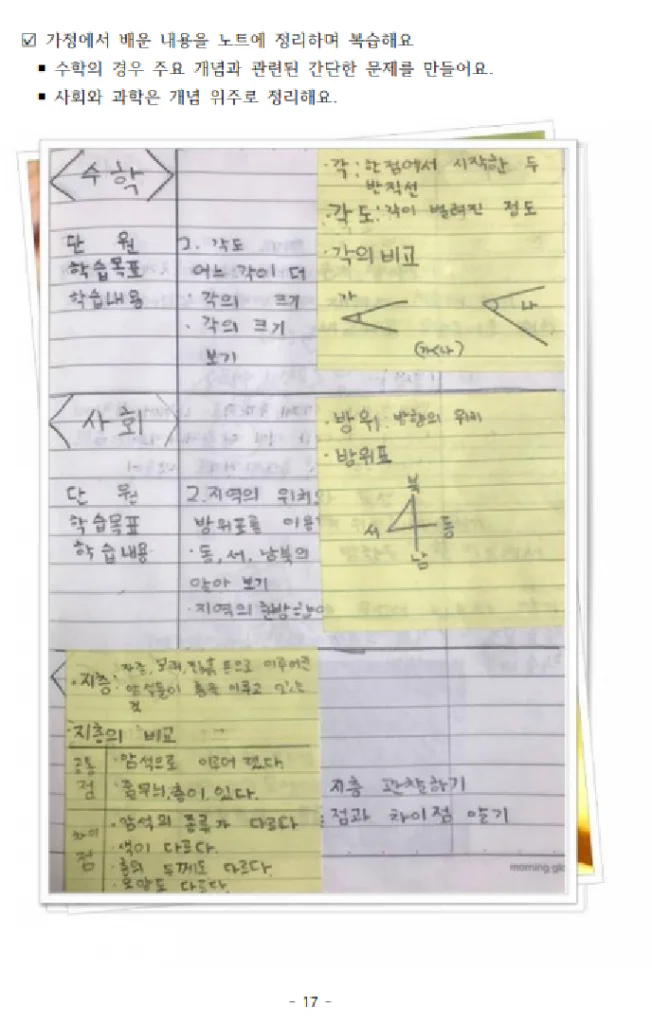 ☑ 가정에서 배운 내용을 노트에 정리하며 복습해요
▪ 수학의 경우 주요 개념과 관련된 간단한 문제를 만들어요.
▪ 사회와 과학은 개념 위주로 정리해요.
<수학>
·각: 한점에서 시작한 두
반직선
·각도: 각이 벌려진 정도
·각의 비교
가
나
(가<나)
단 원
2. 각도
학습목표
어느 각이 더
학습내용
· 각의 크기
· 각의 크기
보기
<사회>
·방위: 방향의 위치
·방위표
북
서
동
남
단 원
2. 지역의 위치와
학습목표
방위표를 이용
학습내용
·동, 서, 남북의
알아 보기
·지역의
·지층: 자갈, 모래, 진흙 등으로 이루어진
암석들이 층을 이루고 있는
것
·지층의 비교
공통
점
·암석으로 이루어 졌다.
·줄무늬, 층이 있다.
차이
점
·암석의 종류가 다르다
·색이 다르다.
·층의 두께도 다르다.
·모양도 다르다.
지층 관찰하기
점과 차이점 알기
morning glo
- 17 -